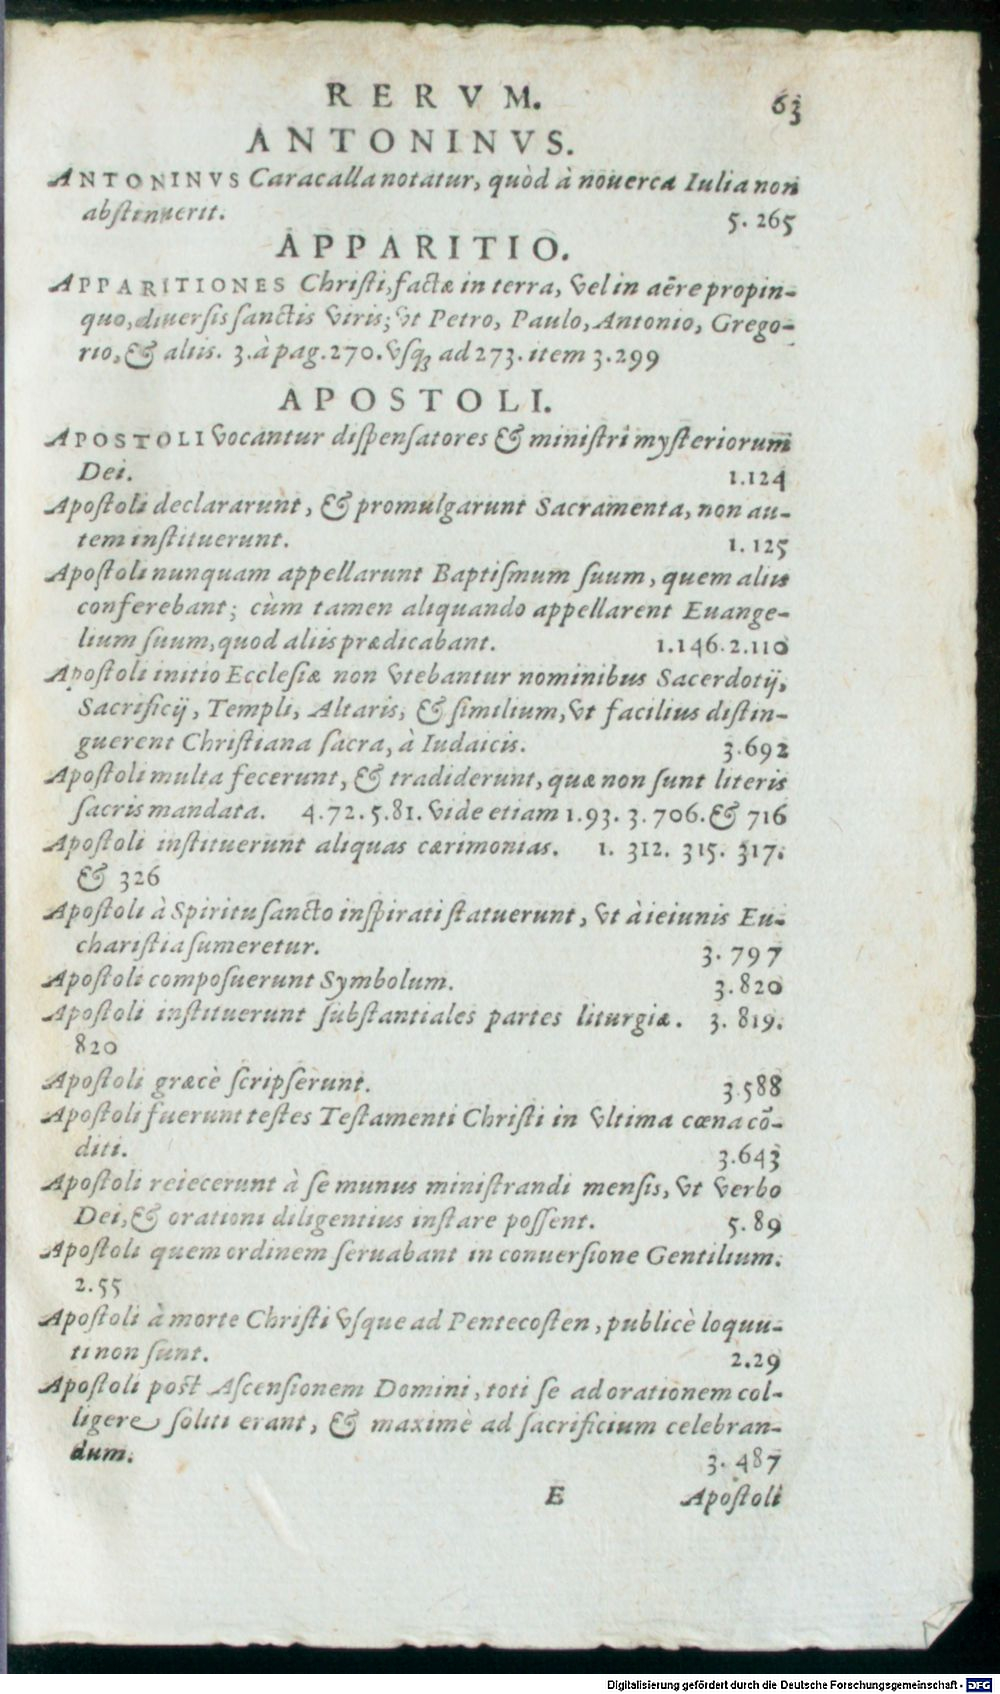 RERVM. 63
ANTONINVS.
ANTONINVS Caracalla notatur, quòd à nouerca Iulia non
abstinuerit. 5. 265
APPARITIO.
APPARITIONES Christi, factæ in terra, vel in aëre propin-
quo, diuersis sanctis viris; vt Petro, Paulo, Antonio, Grego-
rio, & aliis. 3. à pag. 270. vsq; ad 273. item 3.299
APOSTOLI.
APOSTOLI vocantur dispensatores & ministri mysteriorum
Dei. 1.124
Apostoli declararunt, & promulgarunt Sacramenta, non au-
tem instituerunt. 1. 125
Apostoli nunquam appellarunt Baptismum suum, quem aliis
conferebant; cùm tamen aliquando appellarent Euange-
lium suum, quod aliis prædicabant. 1.146. 2.110
Apostoli initio Ecclesiæ non vtebantur nominibus Sacerdotij,
Sacrificij, Templi, Altaris, & similium, vt facilius distin-
guerent Christiana sacra, à Iudaicis. 3.692
Apostoli multa fecerunt, & tradiderunt, quæ non sunt literis
sacris mandata. 4.72. 5.81. vide etiam 1.93. 3. 706. & 716
Apostoli instituerunt aliquas cærimonias. 1. 312. 315. 317.
& 326
Apostoli à Spiritu sancto inspirati statuerunt, vt à ieiunis Eu-
charistia sumeretur. 3. 797
Apostoli composuerunt Symbolum. 3.820
Apostoli instituerunt substantiales partes liturgiæ. 3. 819.
820
Apostoli græcè scripserunt. 3.588
Apostoli fuerunt testes Testamenti Christi in vltima cœna cō-
diti. 3.643
Apostoli reiecerunt à se munus ministrandi mensis, vt verbo
Dei, & orationi diligentius instare possent. 5. 89
Apostoli quem ordinem seruabant in conuersione Gentilium.
2.55
Apostoli à morte Christi vsque ad Pentecosten, publicè loquu-
ti non sunt. 2.29
Apostoli post Ascensionem Domini, toti se ad orationem col-
ligere soliti erant, & maximè ad sacrificium celebran-
dum. 3. 487
E Apostoli
Digitalisierung gefördert durch die Deutsche Forschungsgemeinschaft - DFG